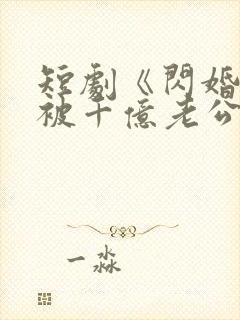 短劇《閃婚
被十億老公
一淼